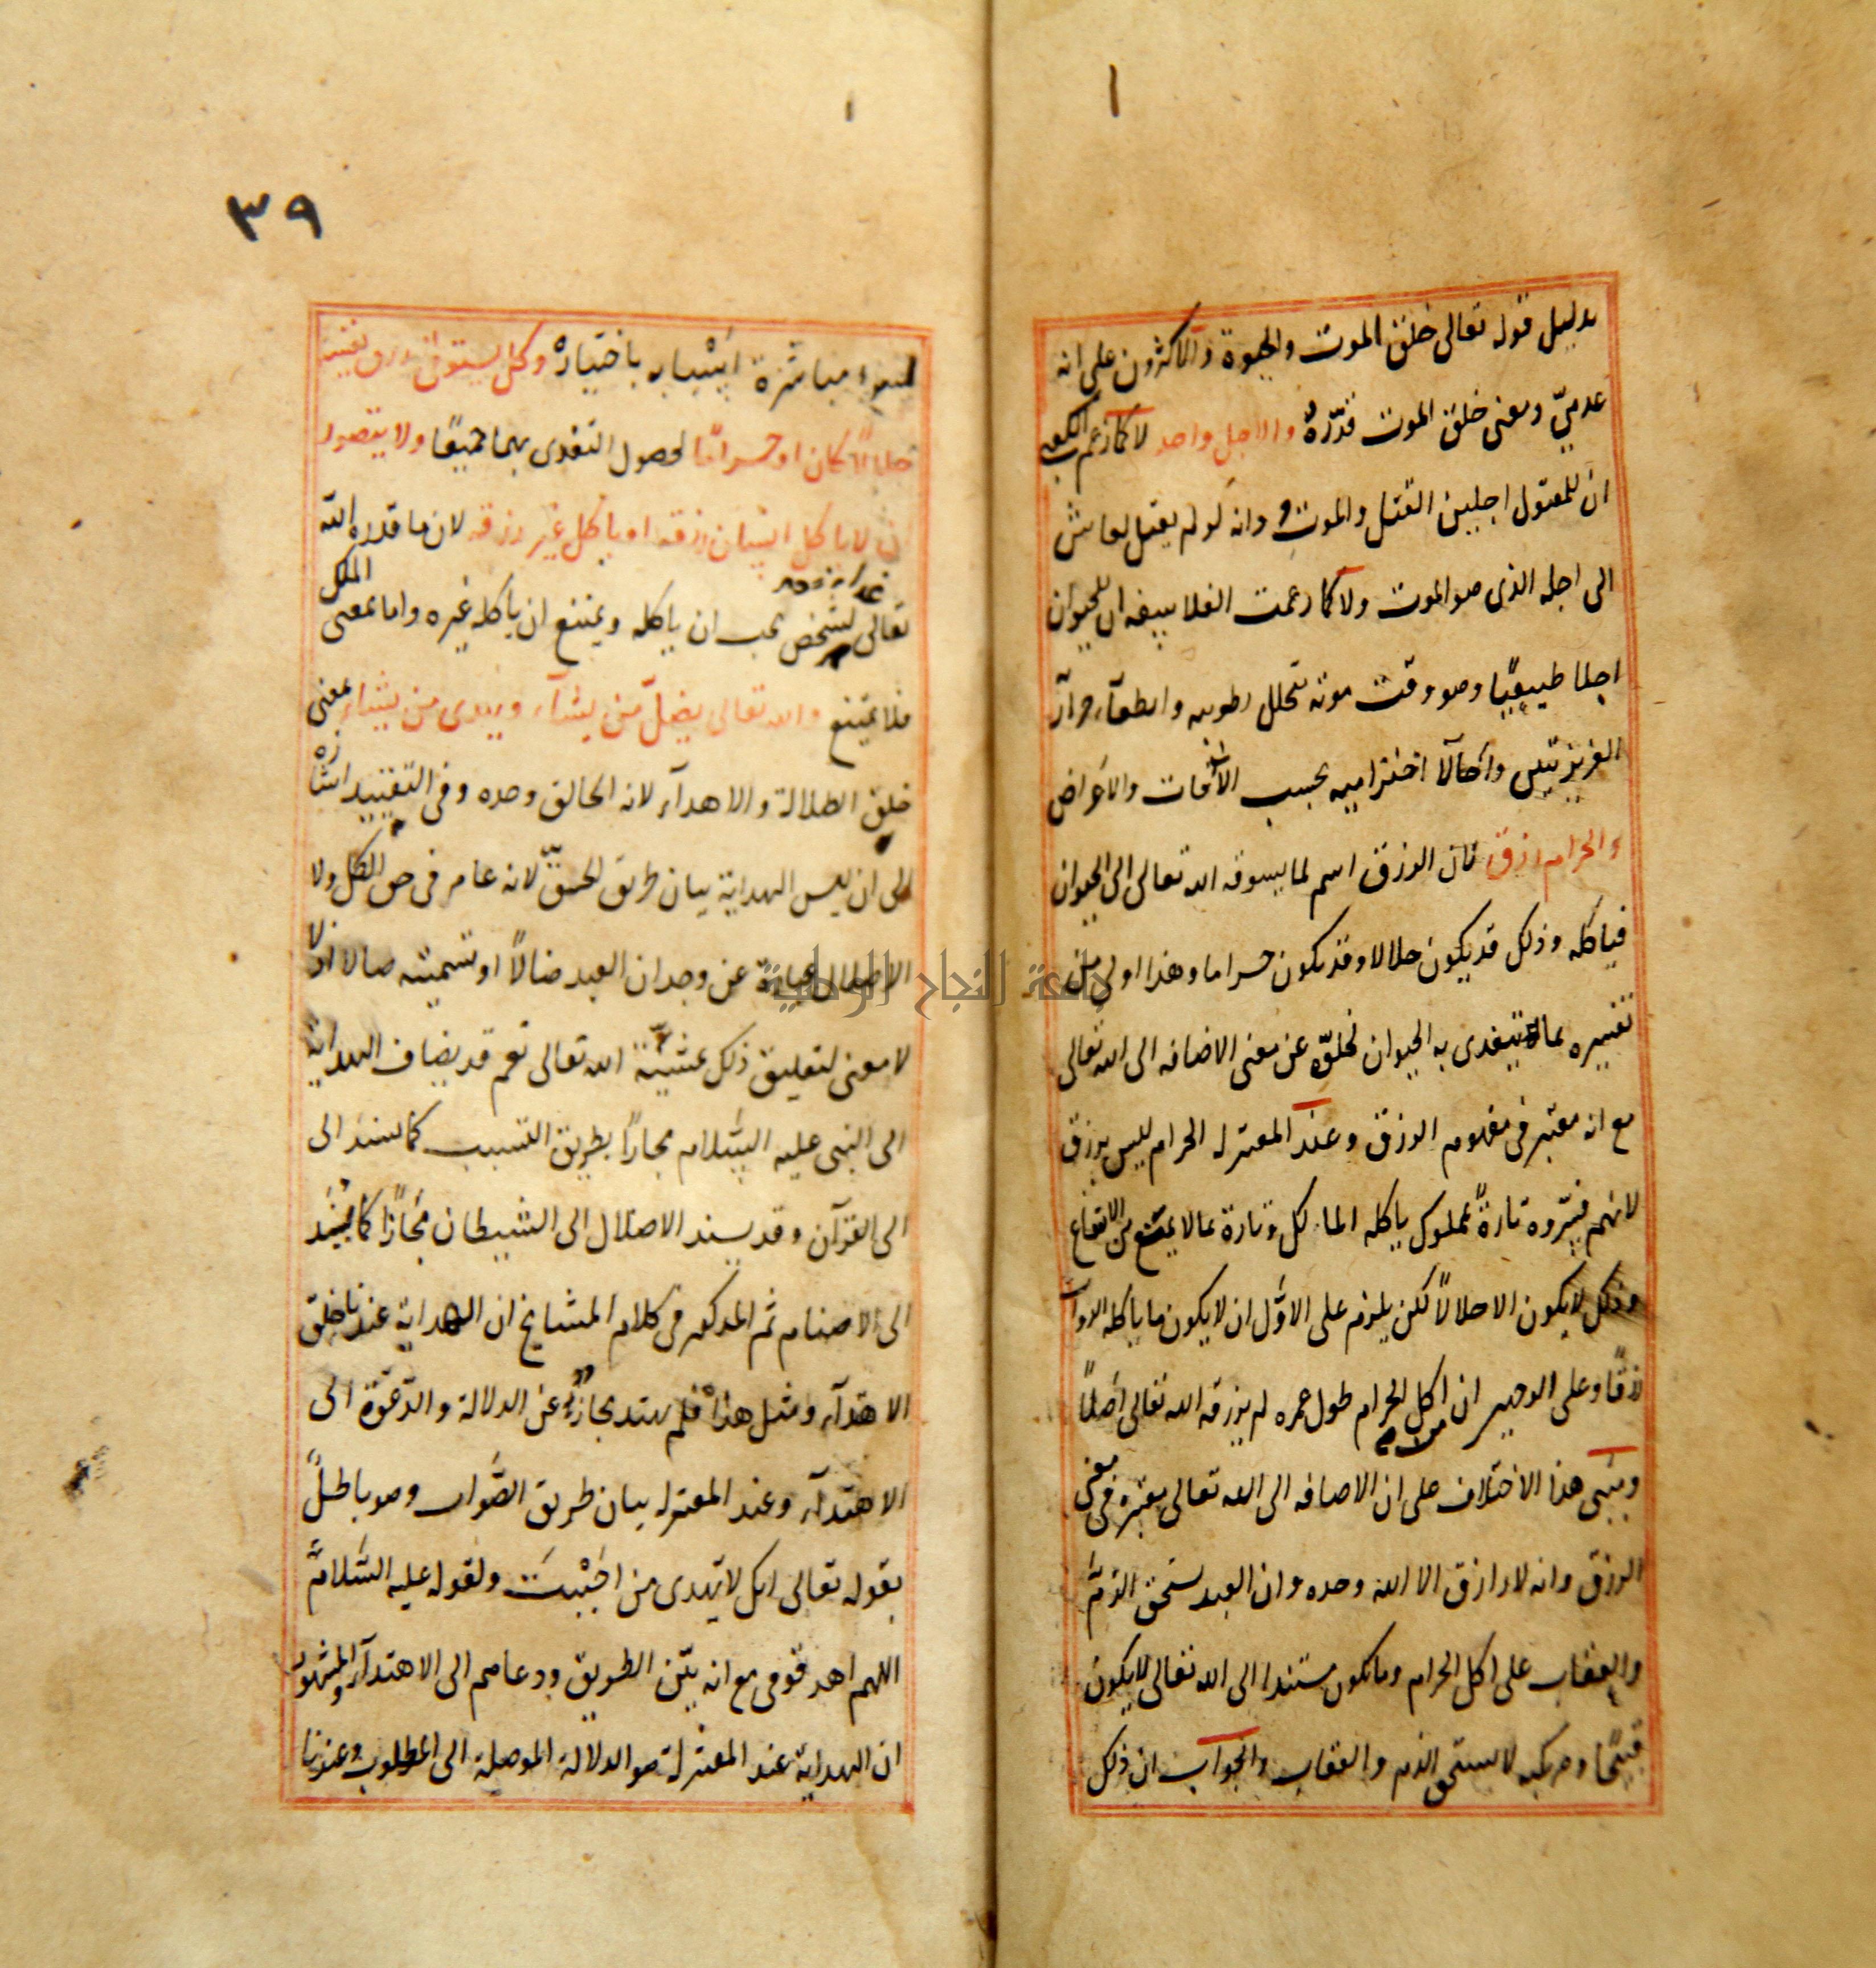 بدليل قوله تعالى خلق الموت والحيوة والاكثرون على انه
عدمىّ ومعنى خلق الموت قدّره والاجل واحد لا كما زعم الكعبى
ان للمقتول اجلين القتل والموت وانه لو لم يقتل لعاش
الى اجله الذى هو الموت ولا كما زعمت الفلاسفه ان للحيوان
اجلا طبيعيًا وهو وقت موته بتحلل رطوبته وانطفآء حرارته
الغريزيتين واجالًا اخترامية بحسب الآفات والامراض
والحرام رزق لان الرزق اسم لما يسوقه الله تعالى الى الحيوان
فيأكله وذلك قد يكون حلالا وقد يكون حراما وهذا اولى من
تفسيره بما يتغذى به الحيوان لخلوّه عن معنى الاضافه الى الله تعالى
مع انه معتبر فى مفهوم الرزق وعند المعتزله الحرام ليس برزق
لانهم فسّروه تارةً بمملوك ياكله المالك وتارة بما لا يمتنع من الانتفاع
وذلك لا يكون الا حلالًا لكن يلزم على الاوّل ان لا يكون ما ياكله الدواب
رزقًا وعلى الوجهين ان من اكل الحرام طول عمره لم يرزقه الله تعالى اصلًا
ومبنى هذا الاختلاف على ان الاضافه الى الله تعالى معتبرة فى معنى
الرزق وانه لا رازق الا الله وحده وان العبد يستحق الذمّ
والعقاب على اكل الحرام وما يكون مستندا الى الله تعالى لا يكون
قبيحًا ومرتكبه لا يستحق الذم والعقاب والجواب ان ذلك
١
١
٣٩
لسوء مباشرة اسبابه باختياره وكل يستوفى رزق نفسه
حلالًا كان او حرامًا لحصول التغذى بهما جميعًا ولا يتصور
ان لا ياكل انسان رزقه او ياكل غير رزقه لان ما قدره الله
تعالى غذاء لشخص يجب ان ياكله ويمتنع ان ياكله غيره واما بمعنى الملك
فلا يمتنع والله تعالى يضلّ من يشآء ويهدى من يشاء بمعنى
خلق الضلالة والاهتدآء لانه الخالق وحده وفى التقييد اشارة
الى ان ليس الهداية بيان طريق الحق لانه عام فى حق الكل ولا
الاضلال عبارة عن وجدان العبد ضالًا او تسميته ضالا اذ
لا معنى لتعليق ذلك بمشيّة الله تعالى نعم قد يضاف الهداية
الى النبى عليه السّلام مجازًا بطريق التسبب كما يسند الى
الى القرآن وقد يسند الاضلال الى الشيطان مجازًا كما يسند
الى الاصنام ثم المذكور فى كلام المشايخ ان الهداية عندنا خلق
الاهتدآء ومثل هذاه فلم يهتد مجاز عن الدلالة والدّعوة الى
الاهتدآء وعند المعتزله بيان طريق الصّواب وهو باطلٌ
بقوله تعالى انك لا تهدى من احببت ولقوله عليه السّلام
اللهم اهد قومى مع انه بيّن الطريق ودعاهم الى الاهتدآء والمشهور
ان الهداية عند المعتزلة هو الدلالة الموصلة الى المطلوب وعندنا
جامعة النجاح الوطنية